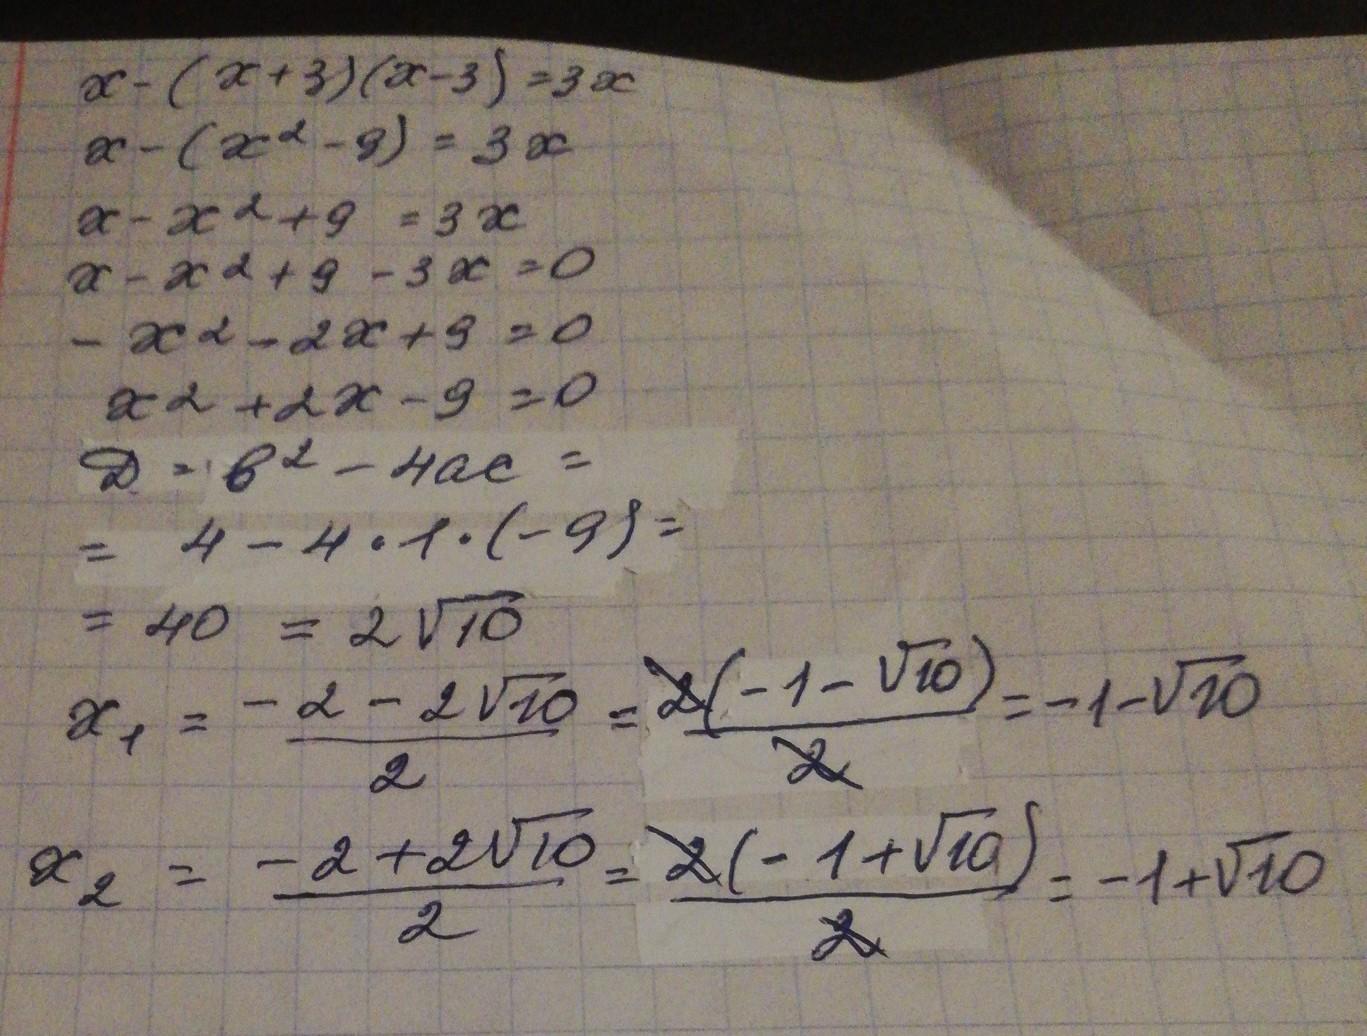 x - (x+3)(x-3) = 3x
x - (x² - 9) = 3x
x - x² + 9 = 3x
x - x² + 9 - 3x = 0
- x² - 2x + 9 = 0
x² + 2x - 9 = 0
D = b² - 4ac =
= 4 - 4 · 1 · (-9) =
= 40 = 2√10
x₁ = (-2 - 2√10)/2 = 2(-1 - √10)/2 = -1 - √10
x₂ = (-2 + 2√10)/2 = 2(-1 + √10)/2 = -1 + √10